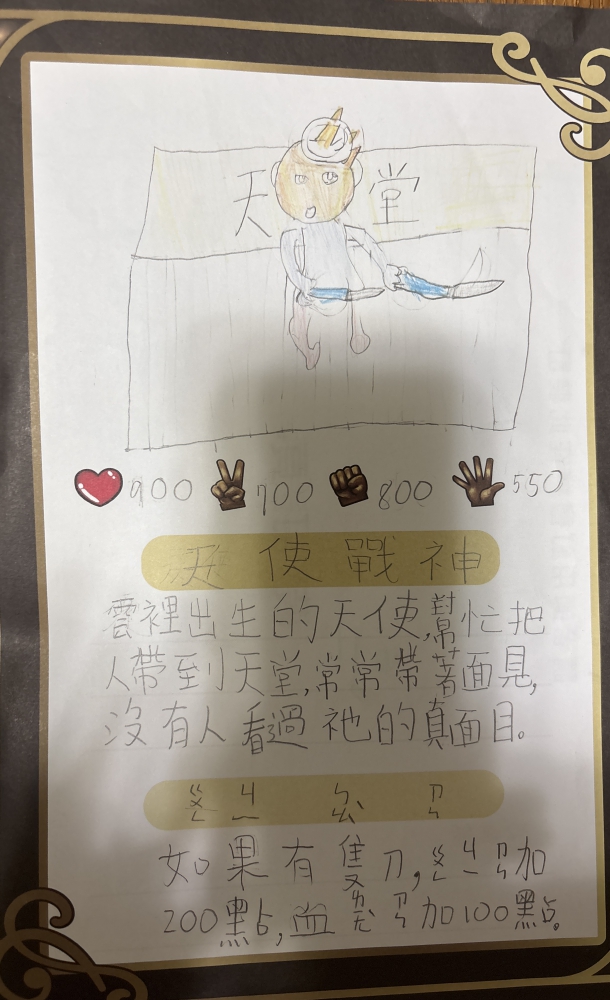 天堂
900 700 800 550
天使戰神
雲裡出生的天使,幫忙把
人帶到天堂,常常帶著面見,
沒有人看過祂的真面目。
如果有隻刀,加
200點,血加100點。